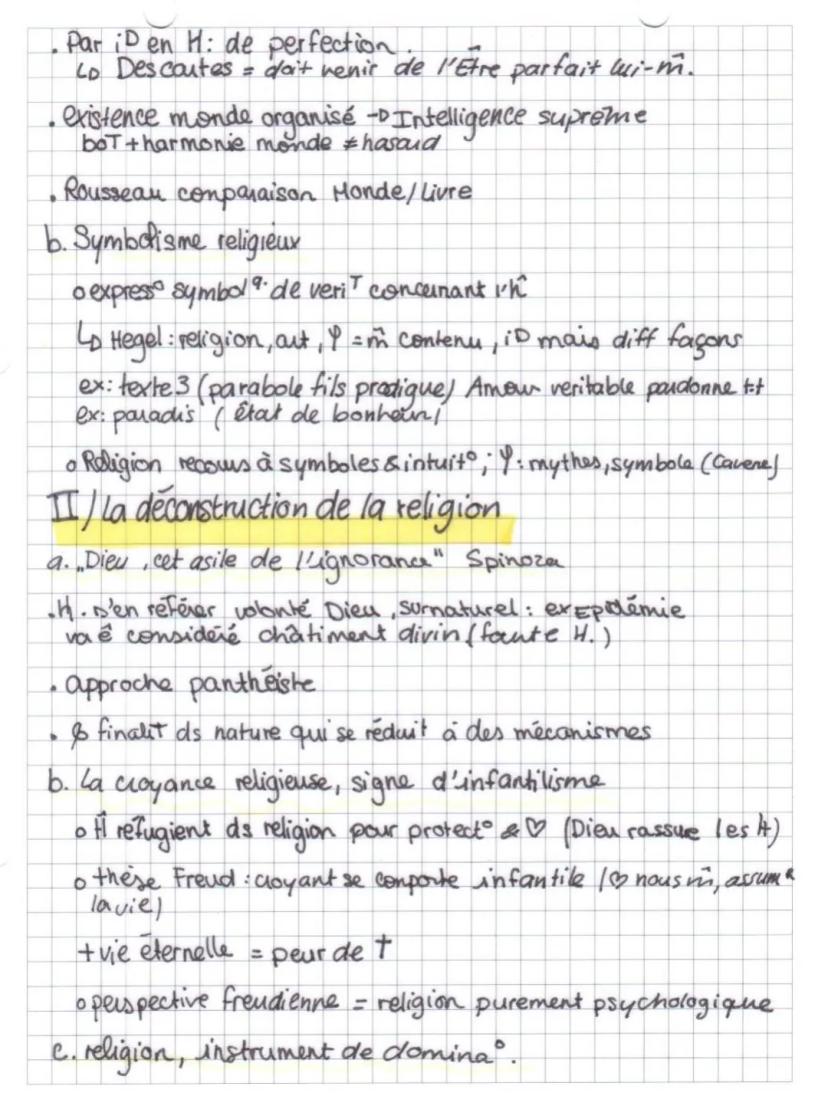 . Par iD en H : de perfection.
↳ Descartes = doit venir de l'Être parfait lui-m̂.
. existence monde organisé → Intelligence suprême
boT + harmonie monde ≠ hasard
. Rousseau comparaison Monde/Livre
b. Symbolisme religieux
o express° symbolq. de veriT concernant l'ĥ
↳ Hegel : religion, art, φ = m̂ contenu, iD mais diff façons
ex: texte 3 (parabole fils prodigue) Amour veritable pardonne tt
ex: paradis (état de bonheur)
o Religion recours à symboles & intuit° ; φ : mythes, symbole (Caverne)
II / La déconstruction de la religion
a. "Dieu, cet asile de l'ignorance" Spinoza
. H. s'en référer volonté Dieu, surnaturel : ex Epidémie
va ê considéré châtiment divin (faute H.)
. approche panthéiste
. finaliT ds nature qui se réduit à des mécanismes
b. La croyance religieuse, signe d'infantilisme
o H refugient ds religion pour protect° & ♡ (Dieu rassure les H)
o thèse Freud : croyant se comporte infantile (♡ nous m̂, assumer
la vie)
+ vie éternelle = peur de †
o perspective freudienne = religion purement psychologique
c. religion, instrument de domina°.